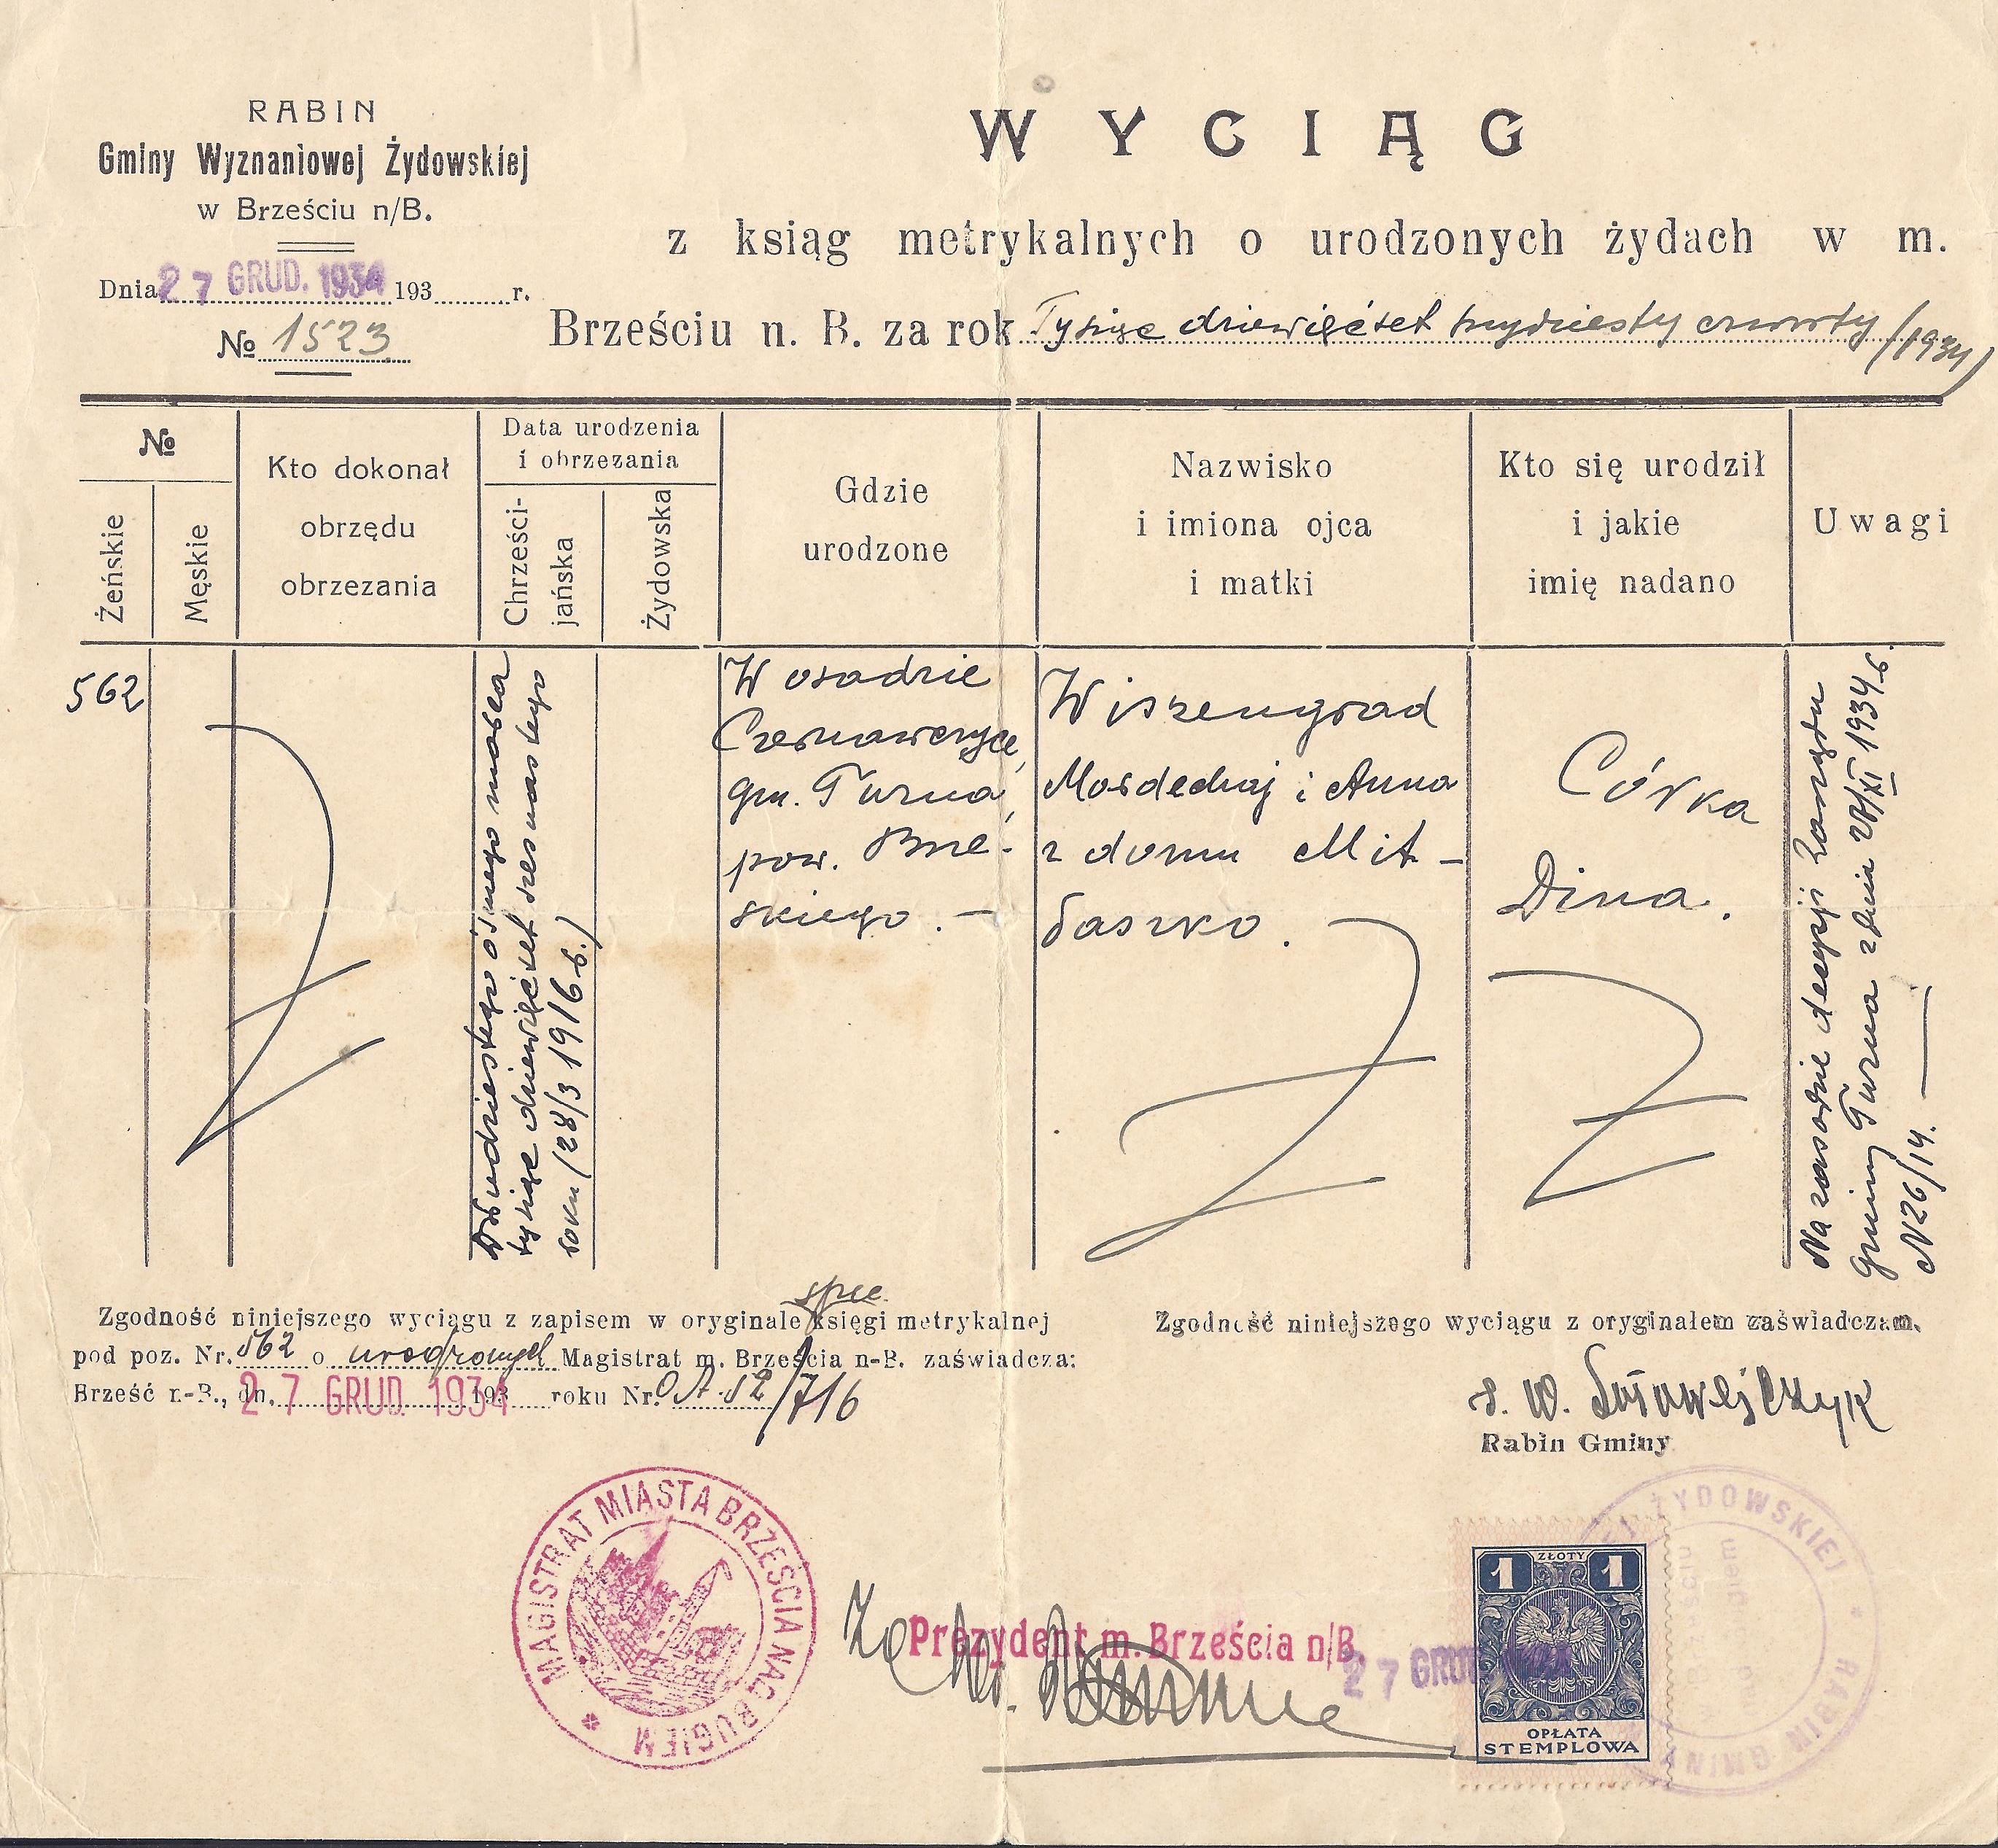 RABIN
Gminy Wyznaniowej Żydowskiej
w Brześciu n/B.
Dnia 27 GRUD. 1934 193 r.
№ 1523
WYCIĄG
z ksiąg metrykalnych o urodzonych żydach w m.
Brześciu n. B. za rok Tysiąc dziewięćset trzydziesty czwarty (1934)
№
Żeńskie
Męskie
Kto dokonał
obrzędu
obrzezania
Data urodzenia
i obrzezania
Chrześci-
jańska
Żydowska
Gdzie
urodzone
Nazwisko
i imiona ojca
i matki
Kto się urodził
i jakie
imię nadano
Uwagi
562
Dwudziestego ósmego marca
tysiąc dziewięćset szesnastego
roku (28/3 1916 r.)
W osadzie
Czernawczyce,
gm. Turna,
pow. Brze-
skiego. —
Wiszengrad
Mordechaj i Anna
z domu Mit-
raszko.
Córka
Dina.
Na zasadzie decyzji Zarządu
gminy Turna z dnia 28/XI 1934 r.
N 26/14. —
Zgodność niniejszego wyciągu z zapisem w oryginale księgi metrykalnej
pod poz. Nr. 562 o urodzonych Magistrat m. Brześcia n-B. zaświadcza:
Brześć n.-B., dn. 27 GRUD. 1934 193 roku Nr. OA.52/716
Zgodność niniejszego wyciągu z oryginałem zaświadczam.
Rabin Gminy
MAGISTRAT MIASTA BRZEŚCIA NAD BUGIEM
Prezydent m. Brześcia n/B.
27 GRUD
1 ZŁOTY 1
OPŁATA
STEMPLOWA
ŻYDOWSKIEJ * RABIN GMINY